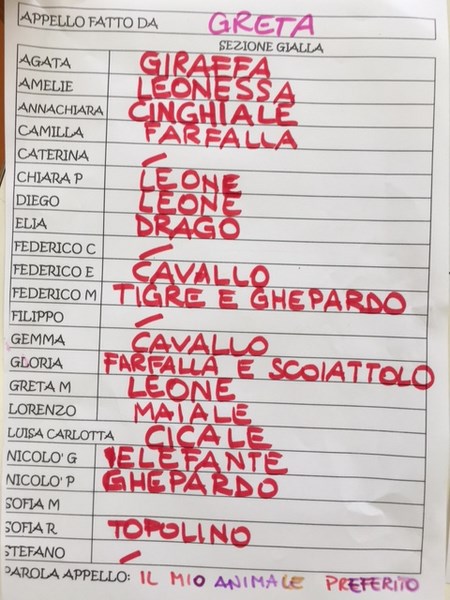 APPELLO FATTO DA GRETA
SEZIONE GIALLA
AGATA GIRAFFA
AMELIE LEONESSA
ANNACHIARA CINGHIALE
CAMILLA FARFALLA
CATERINA /
CHIARA P LEONE
DIEGO LEONE
ELIA DRAGO
FEDERICO C /
FEDERICO E CAVALLO
FEDERICO M TIGRE E GHEPARDO
FILIPPO /
GEMMA CAVALLO
GLORIA FARFALLA E SCOIATTOLO
GRETA M LEONE
LORENZO MAIALE
LUISA CARLOTTA CICALE
NICOLO' G ELEFANTE
NICOLO' P GHEPARDO
SOFIA M
SOFIA R TOPOLINO
STEFANO /
PAROLA APPELLO: IL MIO ANIMALE PREFERITO